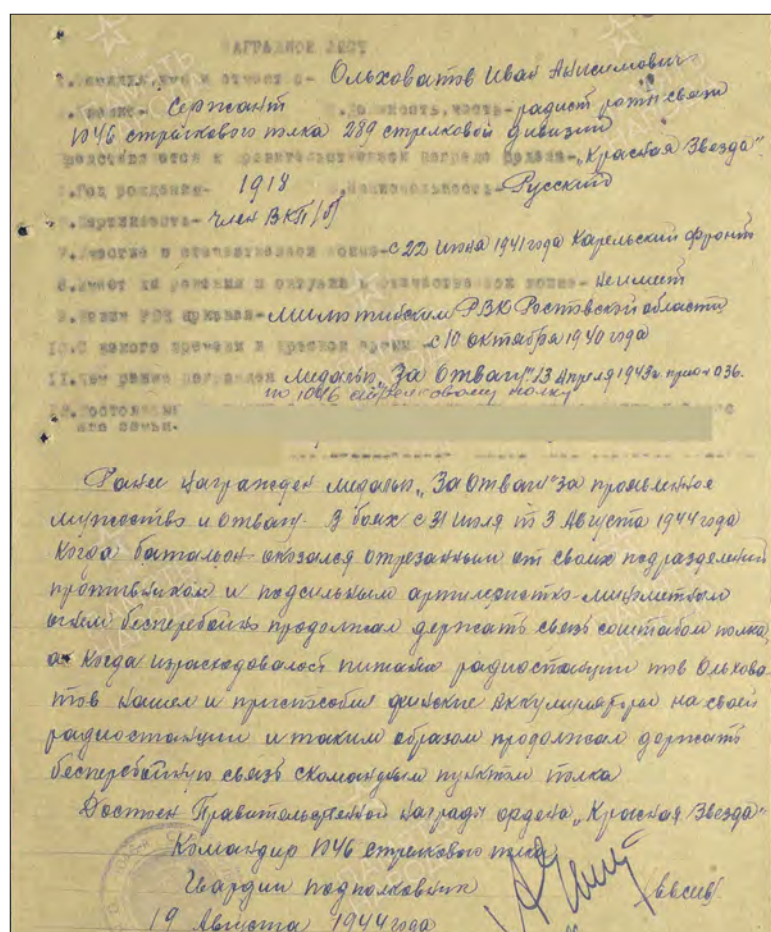 НАГРАДНОЙ ЛИСТ
1. Фамилия, имя и отчество- Ольховатов Иван Анисимович
2. Звание- Сержант 3. Должность, часть- радист роты связи
1046 стрелкового полка 289 стрелковой дивизии
представляется к правительственной награде Ордена- „Красная Звезда".
4. Год рождения- 1918 5. Национальность- Русский
6. Партийность- член ВКП/б/
7. Участие в отечественной войне- с 22 июня 1941 года Карельский фронт
8. Имеет ли ранения и контузии в отечественной войне- Не имеет
9. Каким РВК призван- РВК Ростовской области
10. С какого времени в Красной Армии - с 10 октября 1940 года
11. Чем ранее награжден Медалью „За Отвагу" 13 Апреля 1943г. приказ 036.
по 1046 стрелковому полку
его семьи.
Ранее награжден медалью „За Отвагу" за проявленное
мужество и отвагу. В боях с 31 июля по 3 Августа 1944 года
Когда батальон оказался отрезанным от своих подразделений
противником и под сильным артилериотко-минометным
огнем бесперебойно продолжал держать связь со штабом полка,
а когда израсходовалось питание радиостанции тов Ольхова
тов нашел и приспособил финские аккумуляторы на своей
радиостанции и таким образом продолжал держать
бесперебойную связь с командным пунктом полка
Достоен Правительственной награды ордена „Красная Звезда"
Командир 1046 стрелкового полка
Гвардии подполковник
19 Августа 1944 года